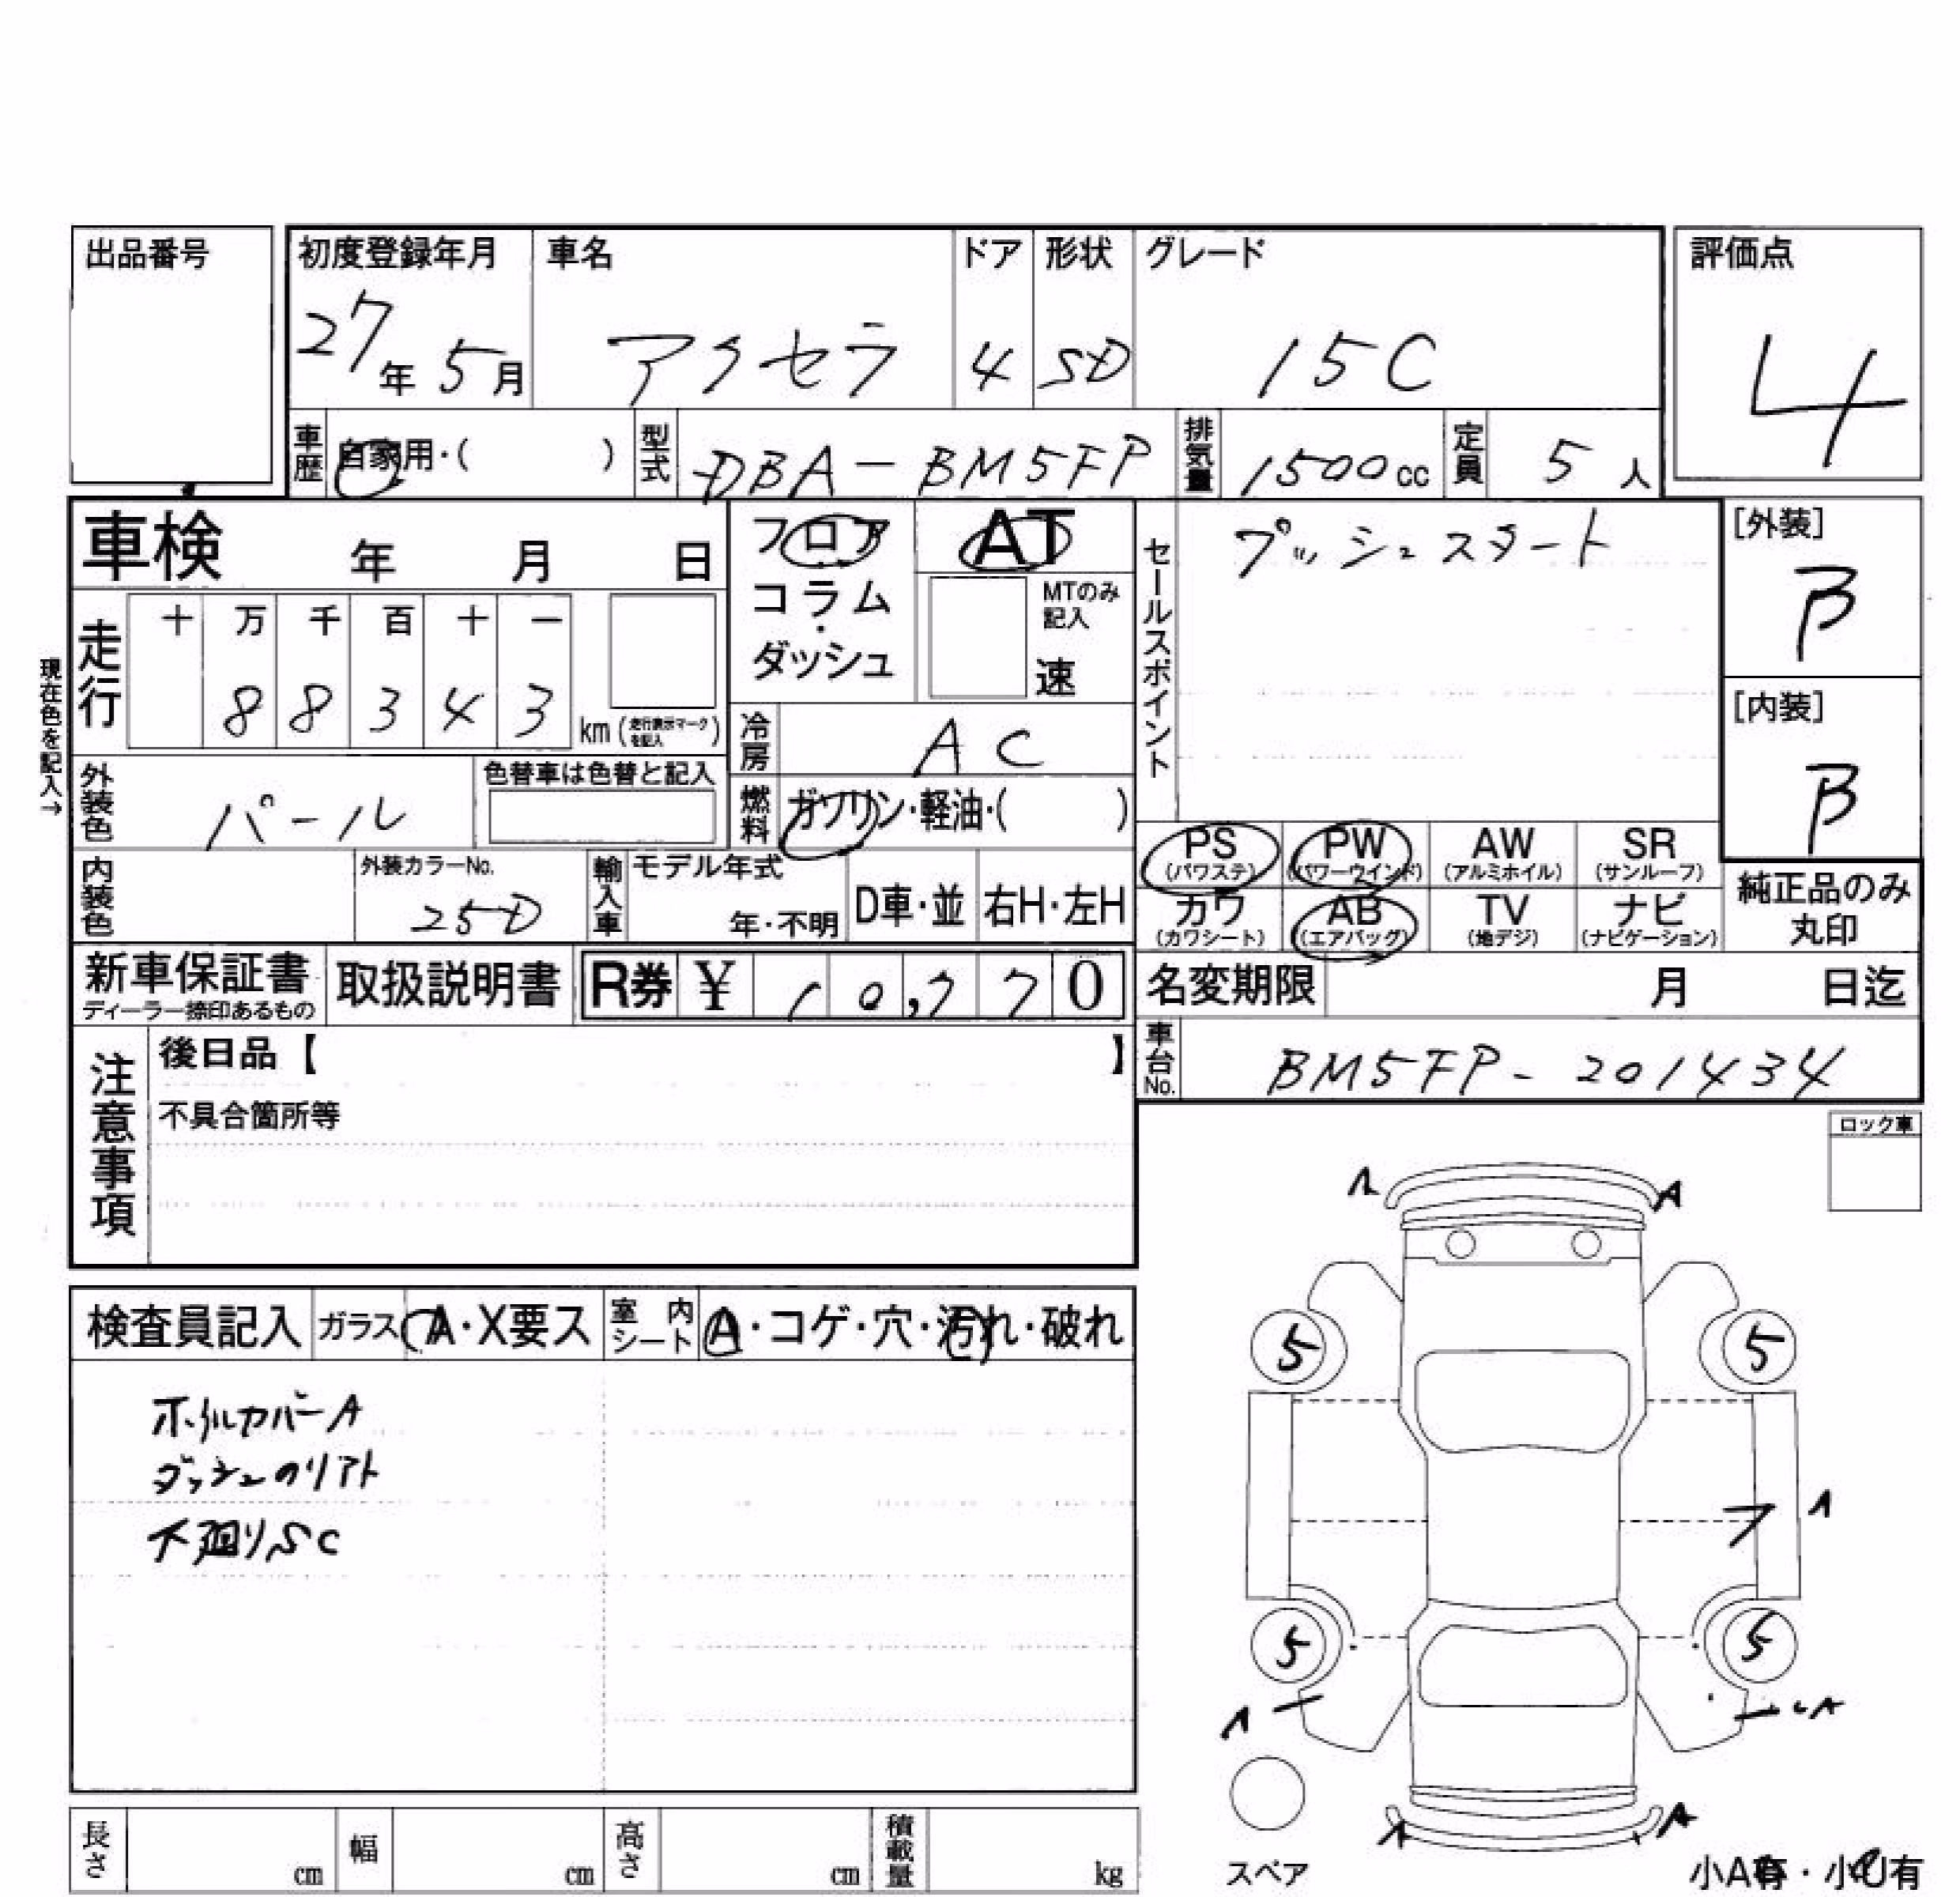 出品番号
初度登録年月 車名 ドア 形状 グレード 評価点
27年 5月 アクセラ 4 SD 15C 4
車歴 自家用・( ) 型式 DBA-BM5FP 排気量 1500cc 定員 5人
車検 年 月 日
フロア AT
コラム・ダッシュ
MTのみ記入
速
セールスポイント プッシュスタート
[外装]
B
[内装]
B
現在色を記入→
走行 十 万 千 百 十 一
8 8 3 4 3 km (走行表示マークを記入)
冷房 AC
外装色 パール 色替車は色替と記入
燃料 ガソリン・軽油・( )
PS (パワステ) PW (パワーウインド) AW (アルミホイル) SR (サンルーフ)
カワ (カワシート) AB (エアバッグ) TV (地デジ) ナビ (ナビゲーション)
純正品のみ
丸印
内装色 外装カラーNo. 25D 輸入車 モデル年式 年・不明 D車・並 右H・左H
新車保証書 ディーラー捺印あるもの 取扱説明書 R券 ¥ 10,770
名変期限 月 日迄
車台No. BM5FP-201434
注意事項 後日品【 】
不具合箇所等
ロック車
A A
検査員記入 ガラス A・X要ス 室内シート A・コゲ・穴・汚れ・破れ
5 5
ホイルカバーA
下廻りSC
A
5 5
A A
A A
スペア
小A有・小U有
長さ cm 幅 cm 高さ cm 積載量 kg